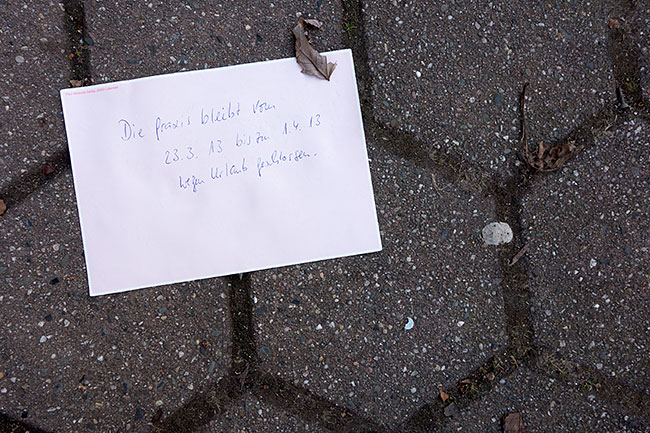 Die Praxis bleibt vom
23.3.13 bis zum 1.4.13
wegen Urlaub geschlossen.